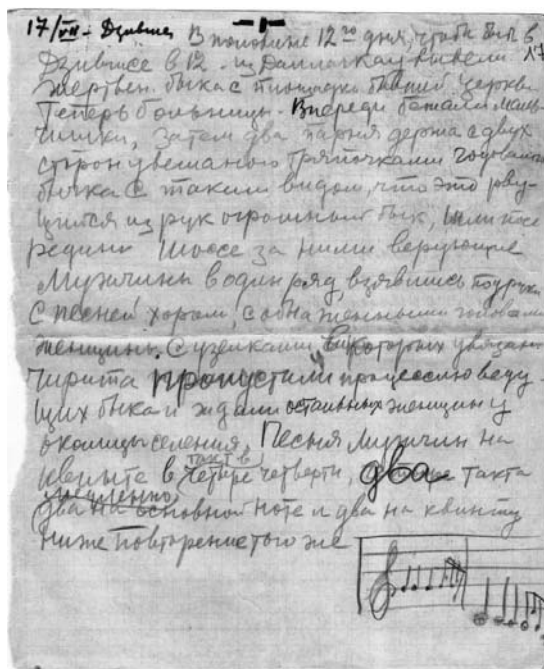 17/VII - Дзывшса
В половине 12го дня, чтоб быть в
17
Дзывшсе в 12 - из вывели
жертвен. быка с площадки бывшей церкви
теперь больницы. Впереди бежали маль-
чишки, затем два парня держа с двух
сторон увешаного тряпочками годовалого
бычка с таким видом, что это рву-
щийся из рук огромный бык, шли посе
редине шоссе за ними верующие
Мужчины в один ряд, взявшись под руки
с песней хором, с обнаженными головами
женщины с узелками в которых увязаны
пропустили процессию веду-
щих быка и ждали остальных женщин у
околицы селения. Песня мужчин на
такт в
кварте в четыре четверти, два такта
медленно,
два на основной ноте и два на квинту
ниже повторение того же